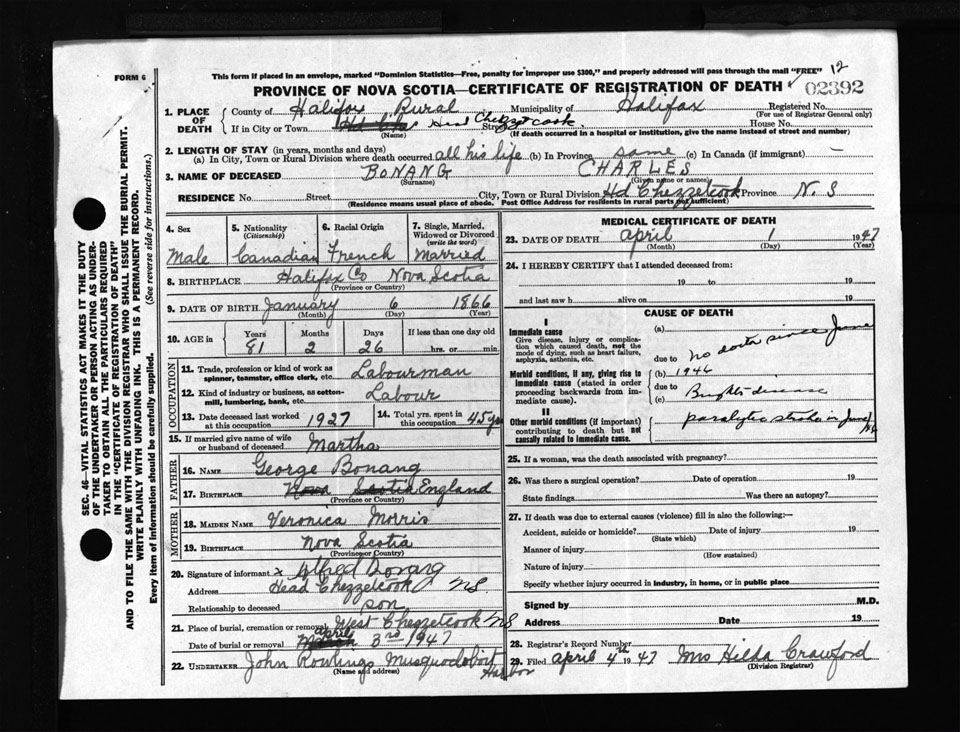 FORM 6
This form if placed in an envelope, marked "Dominion Statistics—Free, penalty for improper use $300," and properly addressed will pass through the mail "FREE"
12
PROVINCE OF NOVA SCOTIA—CERTIFICATE OF REGISTRATION OF DEATH
02392
1. PLACE OF DEATH
County of Halifax Rural Municipality of Halifax Registered No.
(For use of Registrar General only)
If in City or Town Head Chezzetcook Street House No.
(Name) (If death occurred in a hospital or institution, give the name instead of street and number)
2. LENGTH OF STAY (in years, months and days)
(a) In City, Town or Rural Division where death occurred all his life (b) In Province same (c) In Canada (if immigrant) —
3. NAME OF DECEASED BONANG CHARLES
(Surname) (Given name or names)
RESIDENCE No. Street City, Town or Rural Division Hd Chezzetcook Province N. S
(Residence means usual place of abode. Post Office Address for residents in rural parts not sufficient)
4. Sex
Male
5. Nationality (Citizenship)
Canadian
6. Racial Origin
French
7. Single, Married, Widowed or Divorced (write the word)
Married
8. BIRTHPLACE Halifax Co Nova Scotia
(Province or Country)
9. DATE OF BIRTH January 6 1866
(Month) (Day) (Year)
10. AGE in
Years Months Days If less than one day old
81 2 26 hrs. or min.
OCCUPATION
11. Trade, profession or kind of work as spinner, teamster, office clerk, etc. Labourman
12. Kind of industry or business, as cotton-mill, lumbering, bank, etc. Labour
13. Date deceased last worked at this occupation 1927
14. Total yrs. spent in this occupation 45 yrs
15. If married give name of wife or husband of deceased Martha
FATHER
16. NAME George Bonang
17. BIRTHPLACE Nova Scotia England
(Province or Country)
MOTHER
18. MAIDEN NAME Veronica Morris
19. BIRTHPLACE Nova Scotia
(Province or Country)
20. Signature of informant x Alfred Bonang
Address Head Chezzetcook NS
Relationship to deceased son
21. Place of burial, cremation or removal West Chezzetcook NS
Date of burial or removal March april 3rd 1947
22. UNDERTAKER John Rowlings Musquodoboit Harbor
(Name and address)
MEDICAL CERTIFICATE OF DEATH
23. DATE OF DEATH april 1 1947
(Month) (Day) (Year)
24. I HEREBY CERTIFY that I attended deceased from:
19 to 19
and last saw h alive on 19
CAUSE OF DEATH
I
Immediate cause
Give disease, injury or complication which caused death, not the mode of dying, such as heart failure, asphyxia, asthenia, etc.
(a)
due to no doctor since June
Morbid conditions, if any, giving rise to immediate cause (stated in order proceeding backwards from immediate cause).
(b) 1946
due to
(c) Brights disease
II
Other morbid conditions (if important) contributing to death but not causally related to immediate cause.
paralytic stroke in June
25. If a woman, was the death associated with pregnancy?
26. Was there a surgical operation? Date of operation 19
State findings Was there an autopsy?
27. If death was due to external causes (violence) fill in also the following:—
Accident, suicide or homicide? Date of injury 19
(State which)
Manner of injury
(How sustained)
Nature of injury
Specify whether injury occurred in industry, in home, or in public place
Signed by M.D.
Address Date 19
28. Registrar's Record Number
29. Filed april 4th 1947 Mrs Hilda Crawford
(Division Registrar)
SEC. 46—VITAL STATISTICS ACT MAKES IT THE DUTY
OF THE UNDERTAKER OR PERSON ACTING AS UNDER-
TAKER TO OBTAIN ALL THE PARTICULARS REQUIRED
IN THE "CERTIFICATE OF REGISTRATION OF DEATH"
AND TO FILE THE SAME WITH THE DIVISION REGISTRAR WHO SHALL ISSUE THE BURIAL PERMIT.
WRITE PLAINLY WITH UNFADING INK. THIS IS A PERMANENT RECORD.
Every item of information should be carefully supplied. (See reverse side for instructions.)